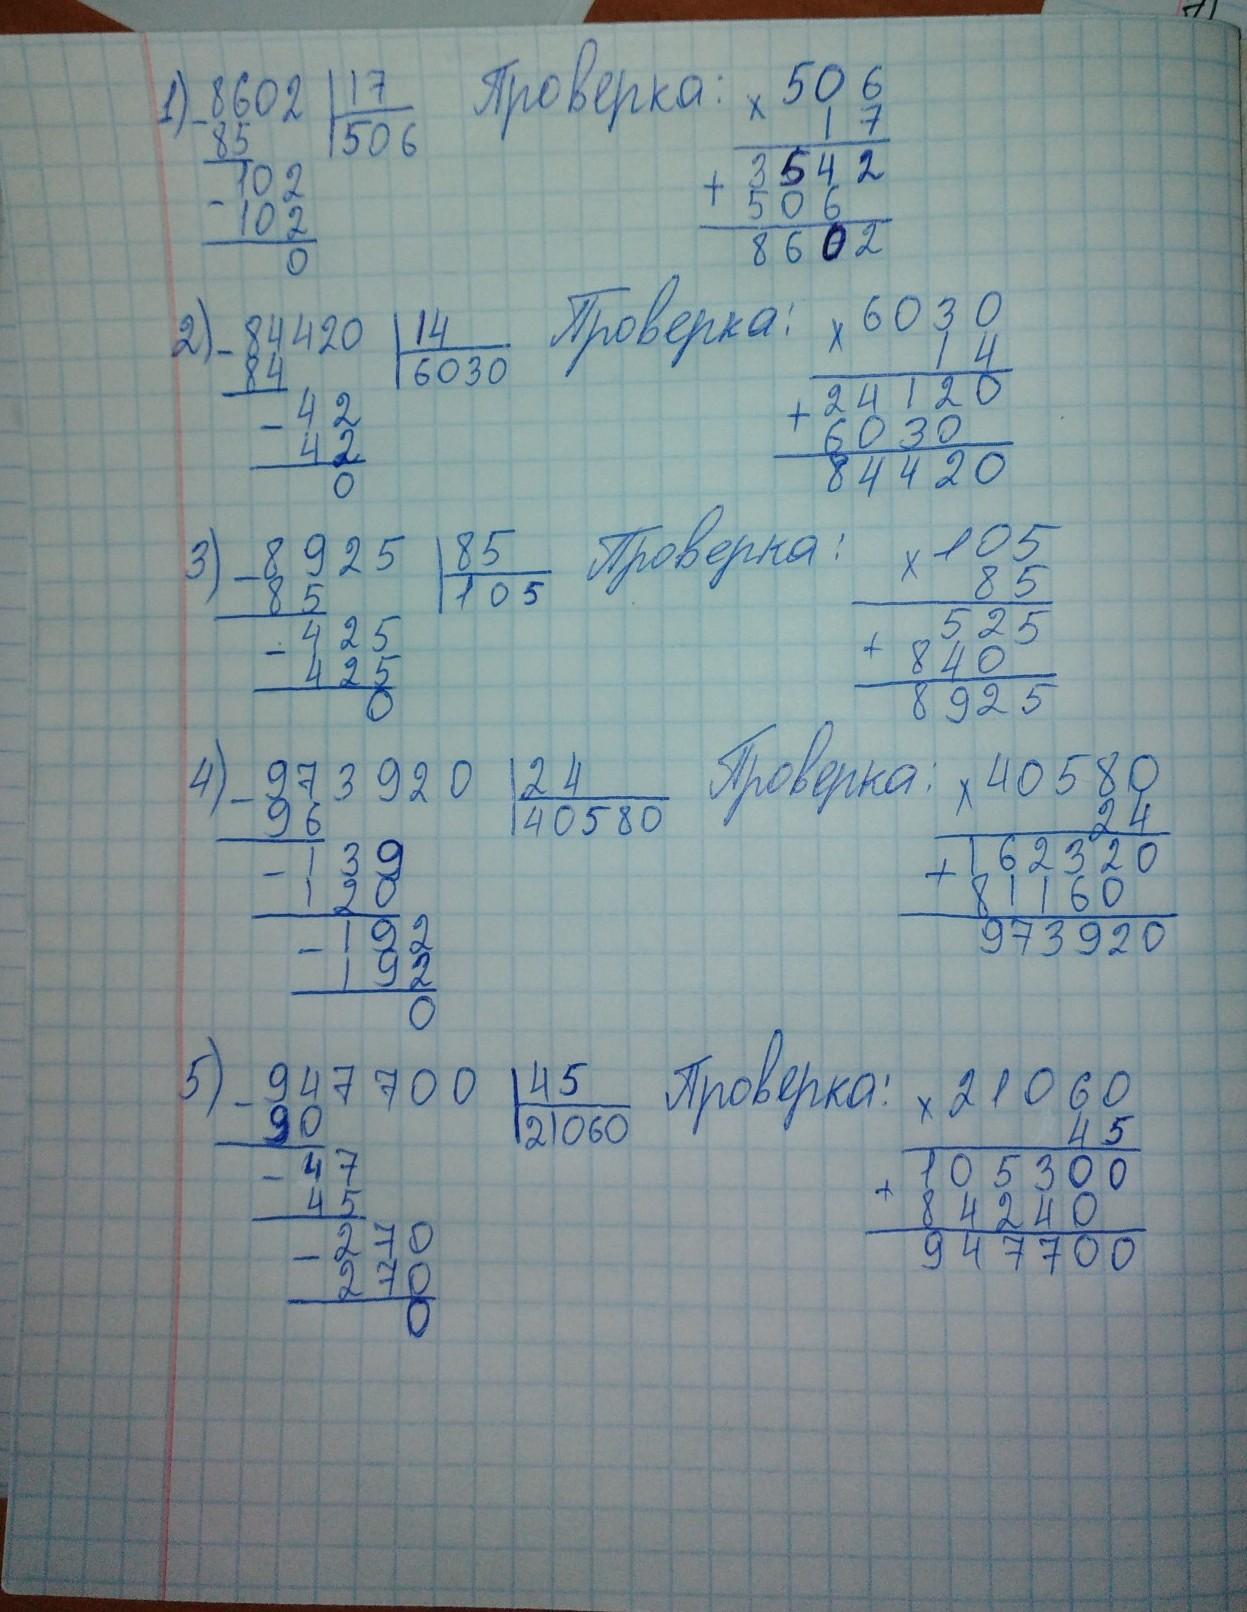 1) - 8602 | 17 Проверка: x 506
85 | 506 17
- 102 + 3542
102 506
0 8602
2) - 84420 | 14 Проверка: x 6030
84 | 6030 14
- 42 + 24120
42 6030
0 84420
3) - 8925 | 85 Проверка: x 105
85 | 105 85
- 425 + 525
425 840
0 8925
4) - 973920 | 24 Проверка: x 40580
96 | 40580 24
- 139 + 162320
120 81160
- 192 973920
192
0
5) - 947700 | 45 Проверка: x 21060
90 | 21060 45
- 47 + 105300
45 84240
- 270 947700
270
0